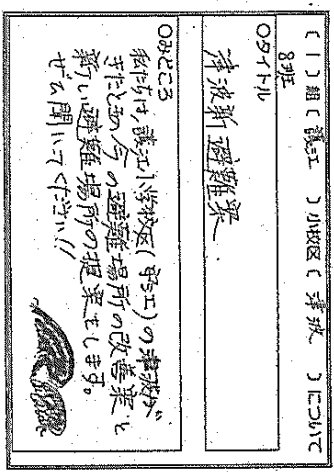 (1)組(護江)小校区(津波)について
8班
○タイトル
津波新避難案
○みどころ
私たちは、護江小学校区(守江)の津波が
きたときの今の避難場所の改善案と
新しい避難場所の提案をします。
ぜひ聞いてください!!